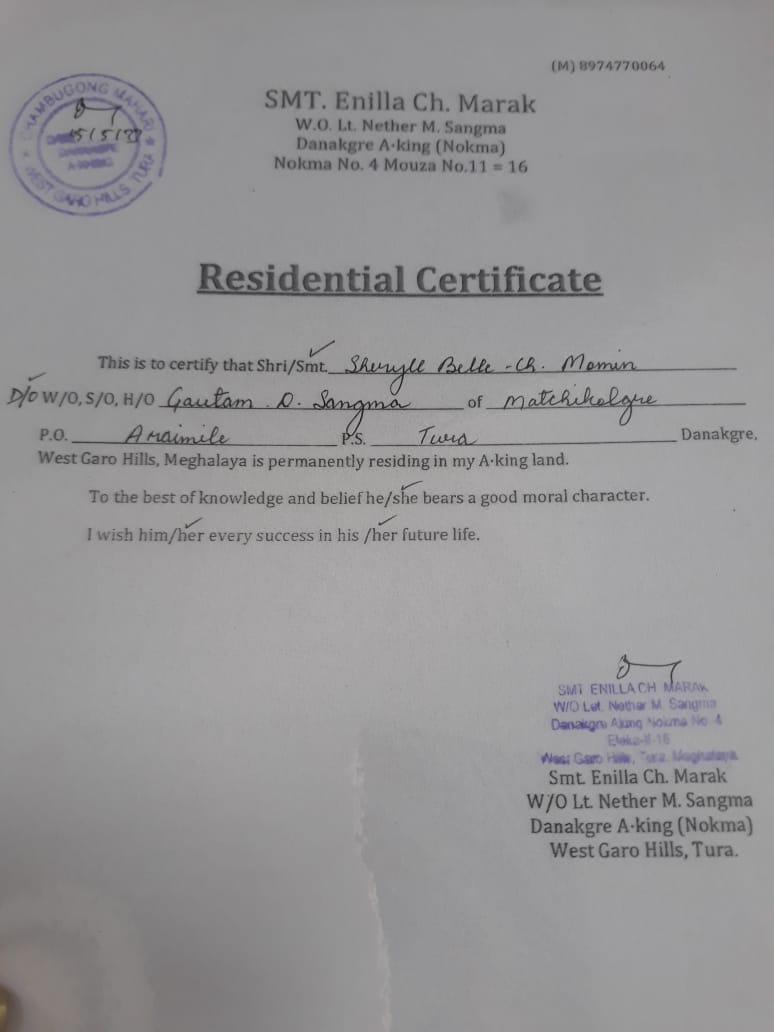 (M) 8974770064
CHAMBUGONG MAHARI
15/5/
WEST GARO HILLS TURA
SMT. Enilla Ch. Marak
W.O. Lt. Nether M. Sangma
Danakgre A·king (Nokma)
Nokma No. 4 Mouza No.11 = 16
Residential Certificate
This is to certify that Shri/Smt. Sheryll Belle Ch. Momin
D/o W/O, S/O, H/O Gautam D. Sangma of Matchikolgre
P.O. Araimile P.S. Tura Danakgre,
West Garo Hills, Meghalaya is permanently residing in my A·king land.
To the best of knowledge and belief he/she bears a good moral character.
I wish him/her every success in his /her future life.
SMT ENILLA CH MARAK
W/O Let. Nether M. Sangma
Danakgre Aking Nokma No 4
Eleka-II-16
West Garo Hills, Tura. Meghalaya
Smt. Enilla Ch. Marak
W/O Lt. Nether M. Sangma
Danakgre A·king (Nokma)
West Garo Hills, Tura.